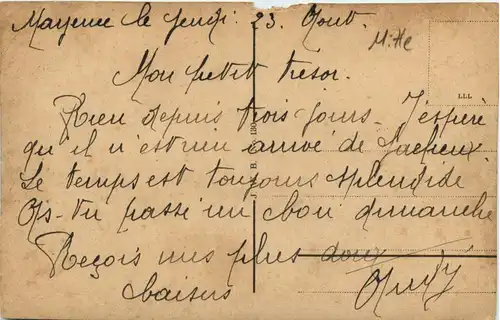 Mayence le Jeudi 23. Aout.
M.Tle
Mon petit trésor.
LLL
Rien depuis trois jours. J'espère
qu'il n'est rien arrivé de facheux.
Le temps est toujours splendide
As-tu passé un bon dimanche
Reçois mes plus doux
baisers